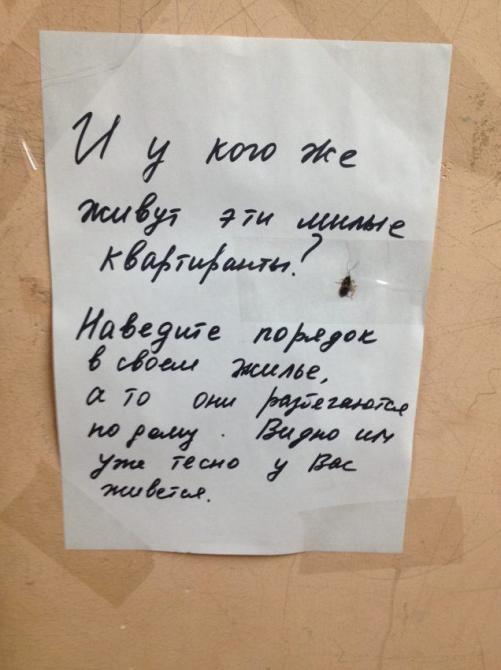 И у кого же
живут эти милые
квартиранты?
Наведите порядок
в своем жилье,
а то они разбегаются
по дому. Видно им
уже тесно у Вас
живется.